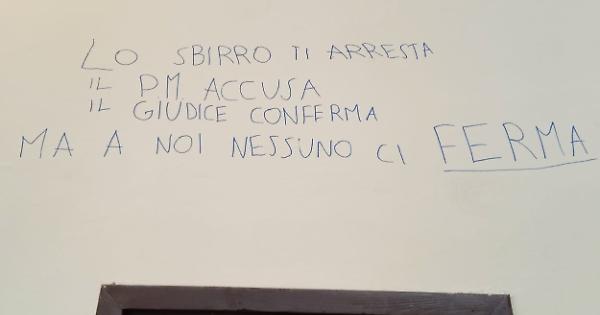 LO SBIRRO TI ARRESTA
IL PM ACCUSA
IL GIUDICE CONFERMA
MA A NOI NESSUNO CI FERMA